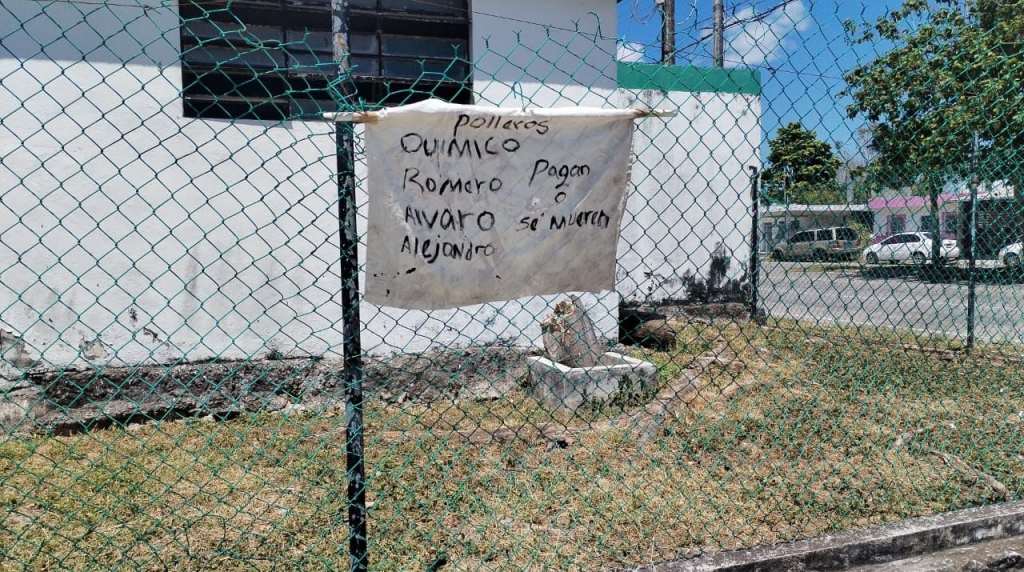 Polleros
QUIMICO
Romero Pagan
o
Alvaro se mueren
Alejandro